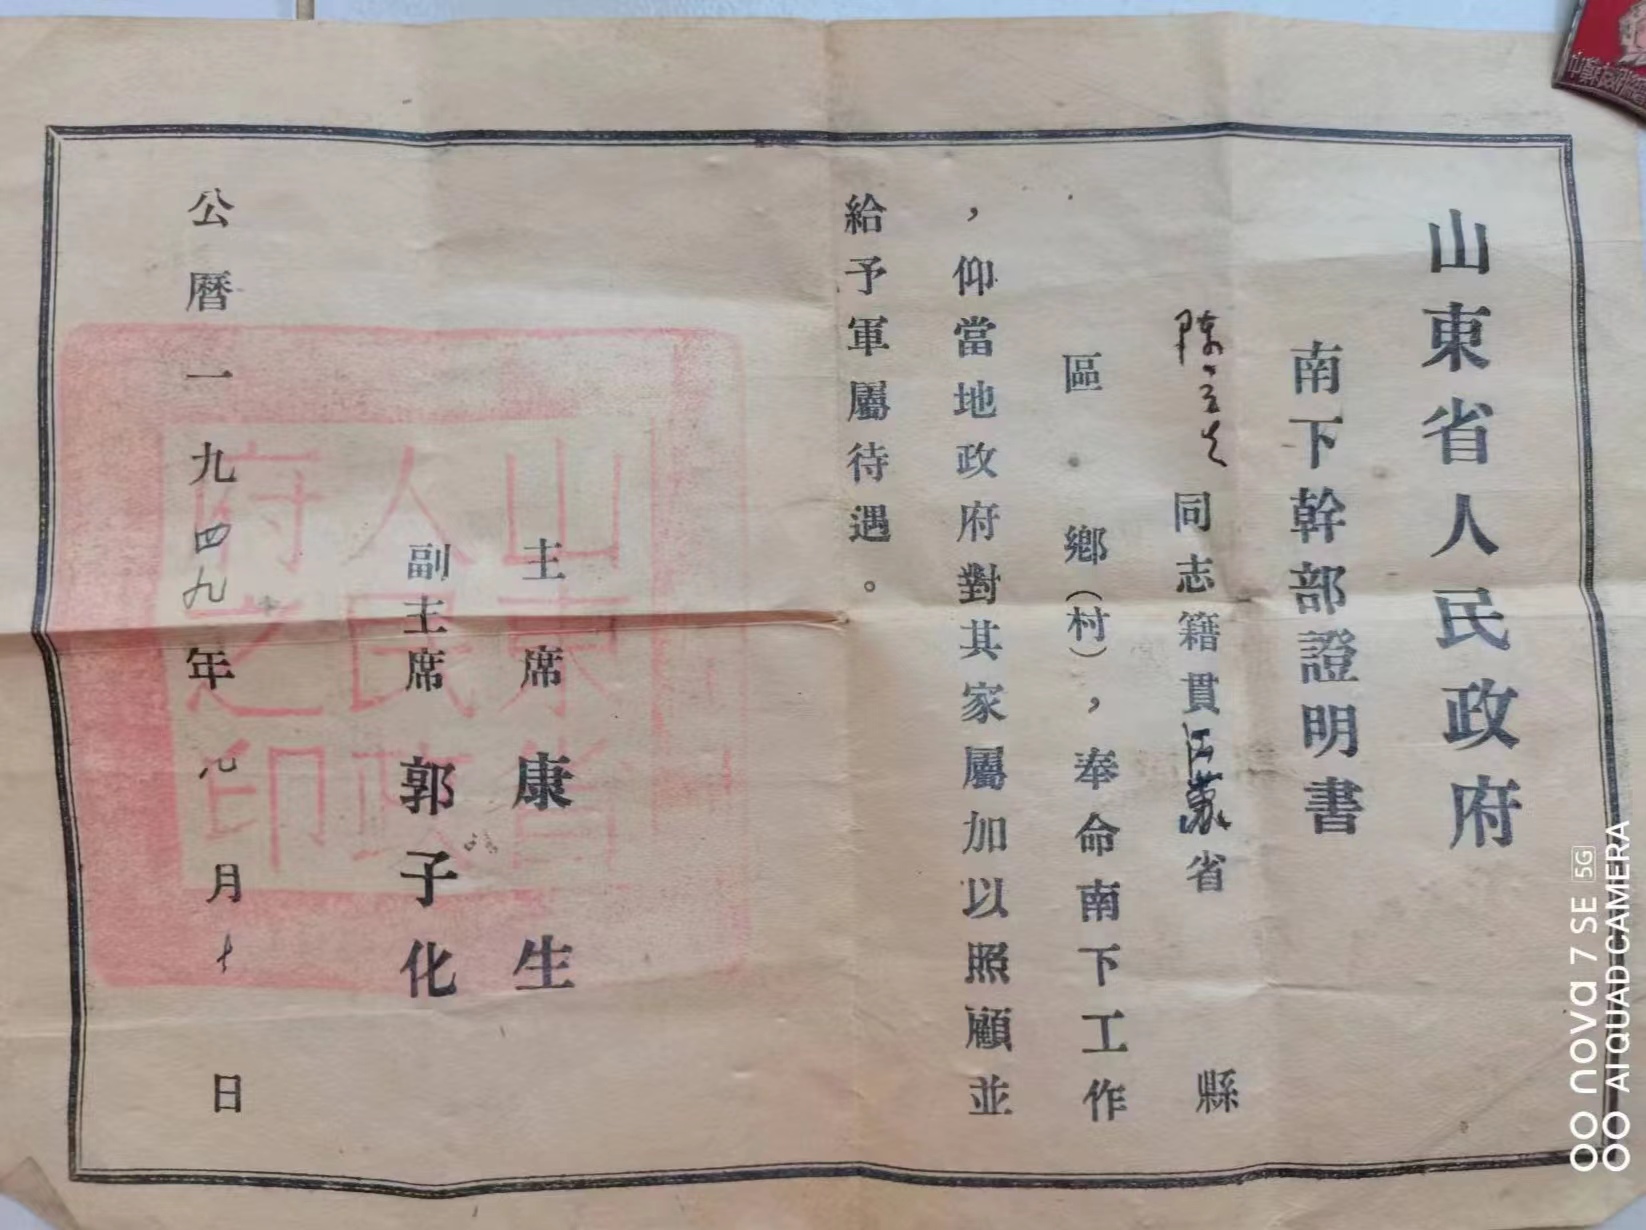 山東省人民政府
南下幹部證明書
陳立文同志籍貫江蘇省 縣
區 鄉(村),奉命南下工作
,仰當地政府對其家屬加以照顧並
給予軍屬待遇。
主席 康生
副主席 郭子化
公曆一九四九年九月十日
山東省人民政府之印
nova 7 SE 5G
AI QUAD CAMERA